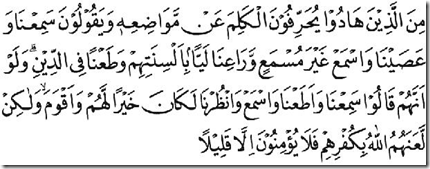 مِنَ الَّذِيْنَ هَادُوْا يُحَرِّفُوْنَ الْكَلِمَ عَنْ مَّوَاضِعِهٖ وَيَقُوْلُوْنَ سَمِعْنَا وَ
عَصَيْنَا وَاسْمَعْ غَيْرَ مُسْمَعٍ وَّرَاعِنَا لَيًّاۢ بِاَلْسِنَتِهِمْ وَطَعْنًا فِى الدِّيْنِ ۗ وَلَوْ
اَنَّهُمْ قَالُوْا سَمِعْنَا وَاَطَعْنَا وَاسْمَعْ وَانْظُرْنَا لَكَانَ خَيْرًا لَّهُمْ وَاَقْوَمَ ۙ وَلٰكِنْ
لَّعَنَهُمُ اللّٰهُ بِكُفْرِهِمْ فَلَا يُؤْمِنُوْنَ اِلَّا قَلِيْلًا